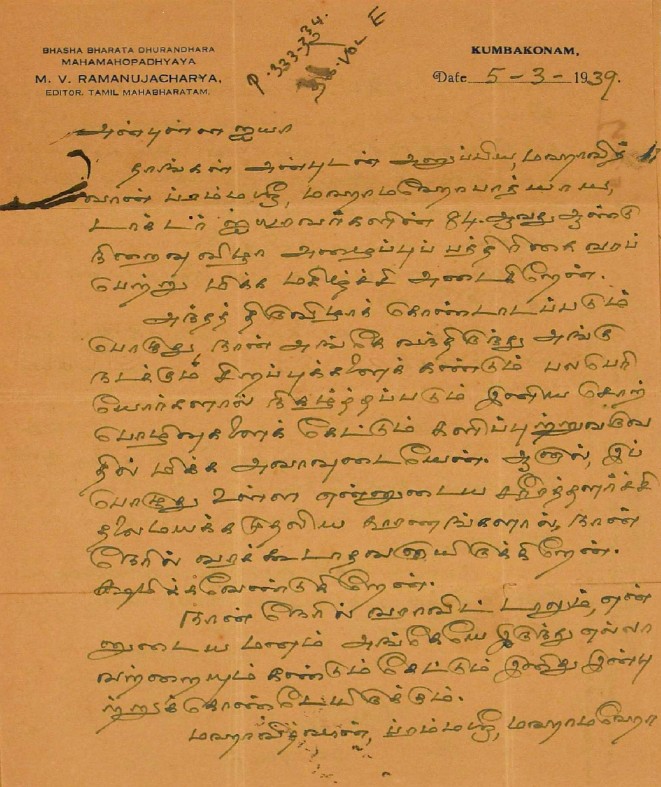 BHASHA BHARATA DHURANDHARA
MAHAMAHOPADHYAYA
M. V. RAMANUJACHARYA,
EDITOR, TAMIL MAHABHARATAM.
P. 333-334.
VOL E
KUMBAKONAM,
Date 5-3-1939.
அன்புள்ள ஐயா
தாங்கள் அன்புடன் அனுப்பிய, மஹாவித்
வான் ப்ரம்மஸ்ரீ, மஹாமஹோபாத்யாய,
டாக்டர் ஐயரவர்களின் 84-ஆவது ஆண்டு
நிறைவு விழா அழைப்புப் பத்திரிகை வரப்
பெற்று மிக்க மகிழ்ச்சி அடைகிறேன்.
அந்தத் திருவிழாக் கொண்டாடப்படும்
பொழுது, நான் அங்கே வந்திருந்து அங்கு
நடக்கும் சிறப்புக்களைக் கண்டும் பல பெரி
யோர்களால் நிகழ்த்தப்படும் இனிய சொற்
பொழிவுகளைக் கேட்டும் களிப்புற்று வருவ
தில் மிக்க அவாவுடையேன். ஆனால், இப்
பொழுது உள்ள என்னுடைய சரீரத்தளர்ச்சி
தலைமயக்க முதலிய காரணங்களால், நான்
நேரில் வரக்கூடாதவனாயிருக்கிறேன்.
க்ஷமிக்கவேண்டுகிறேன்.
நான் நேரில் வராவிட்டாலும், என்
னுடைய மனம் அங்கேயே இருந்து எல்லா
வற்றையும் கண்டும் கேட்டும் இனிது இன்பு
ற்றுக்கொண்டேயிருக்கும்.
மஹாவித்வான், ப்ரம்மஸ்ரீ, மஹாமஹோ